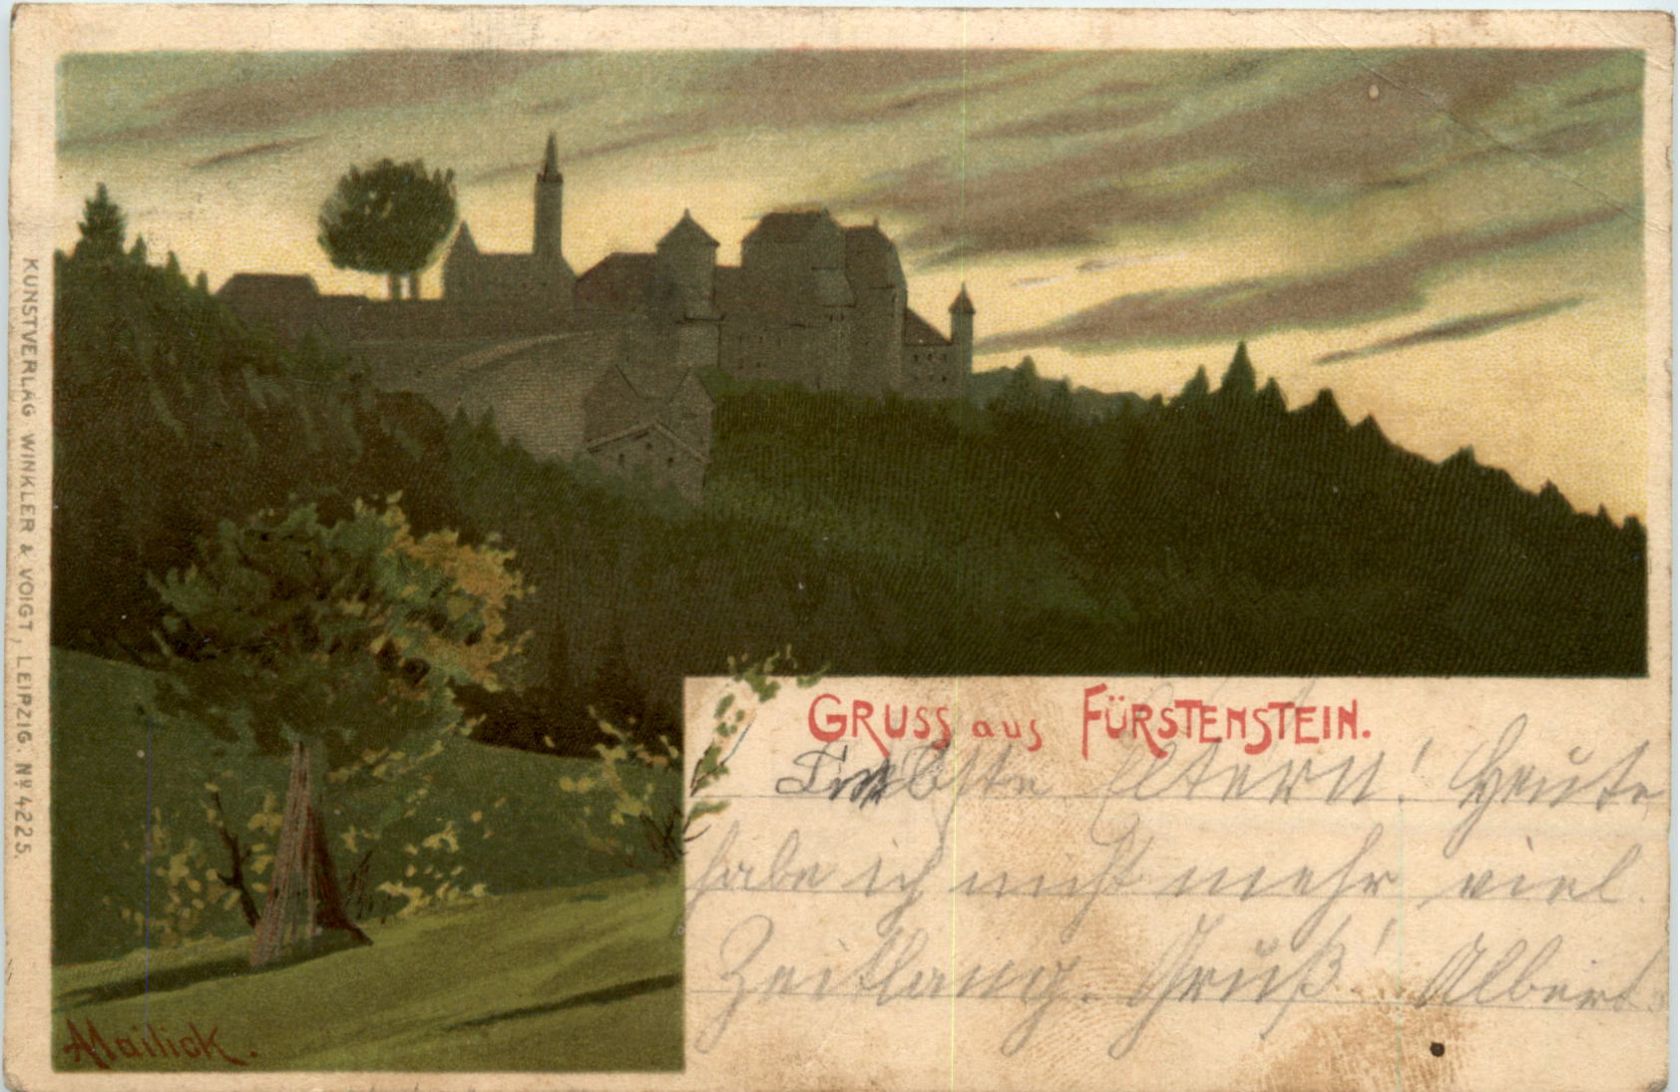 KUNSTVERLAG WINKLER & VOIGT, LEIPZIG. No 4225.
GRUSS aus FÜRSTENSTEIN.
Liebste Eltern! Heute
habe ich nicht mehr viel
Zeitlang. Gruß! Albert.
AMailick.